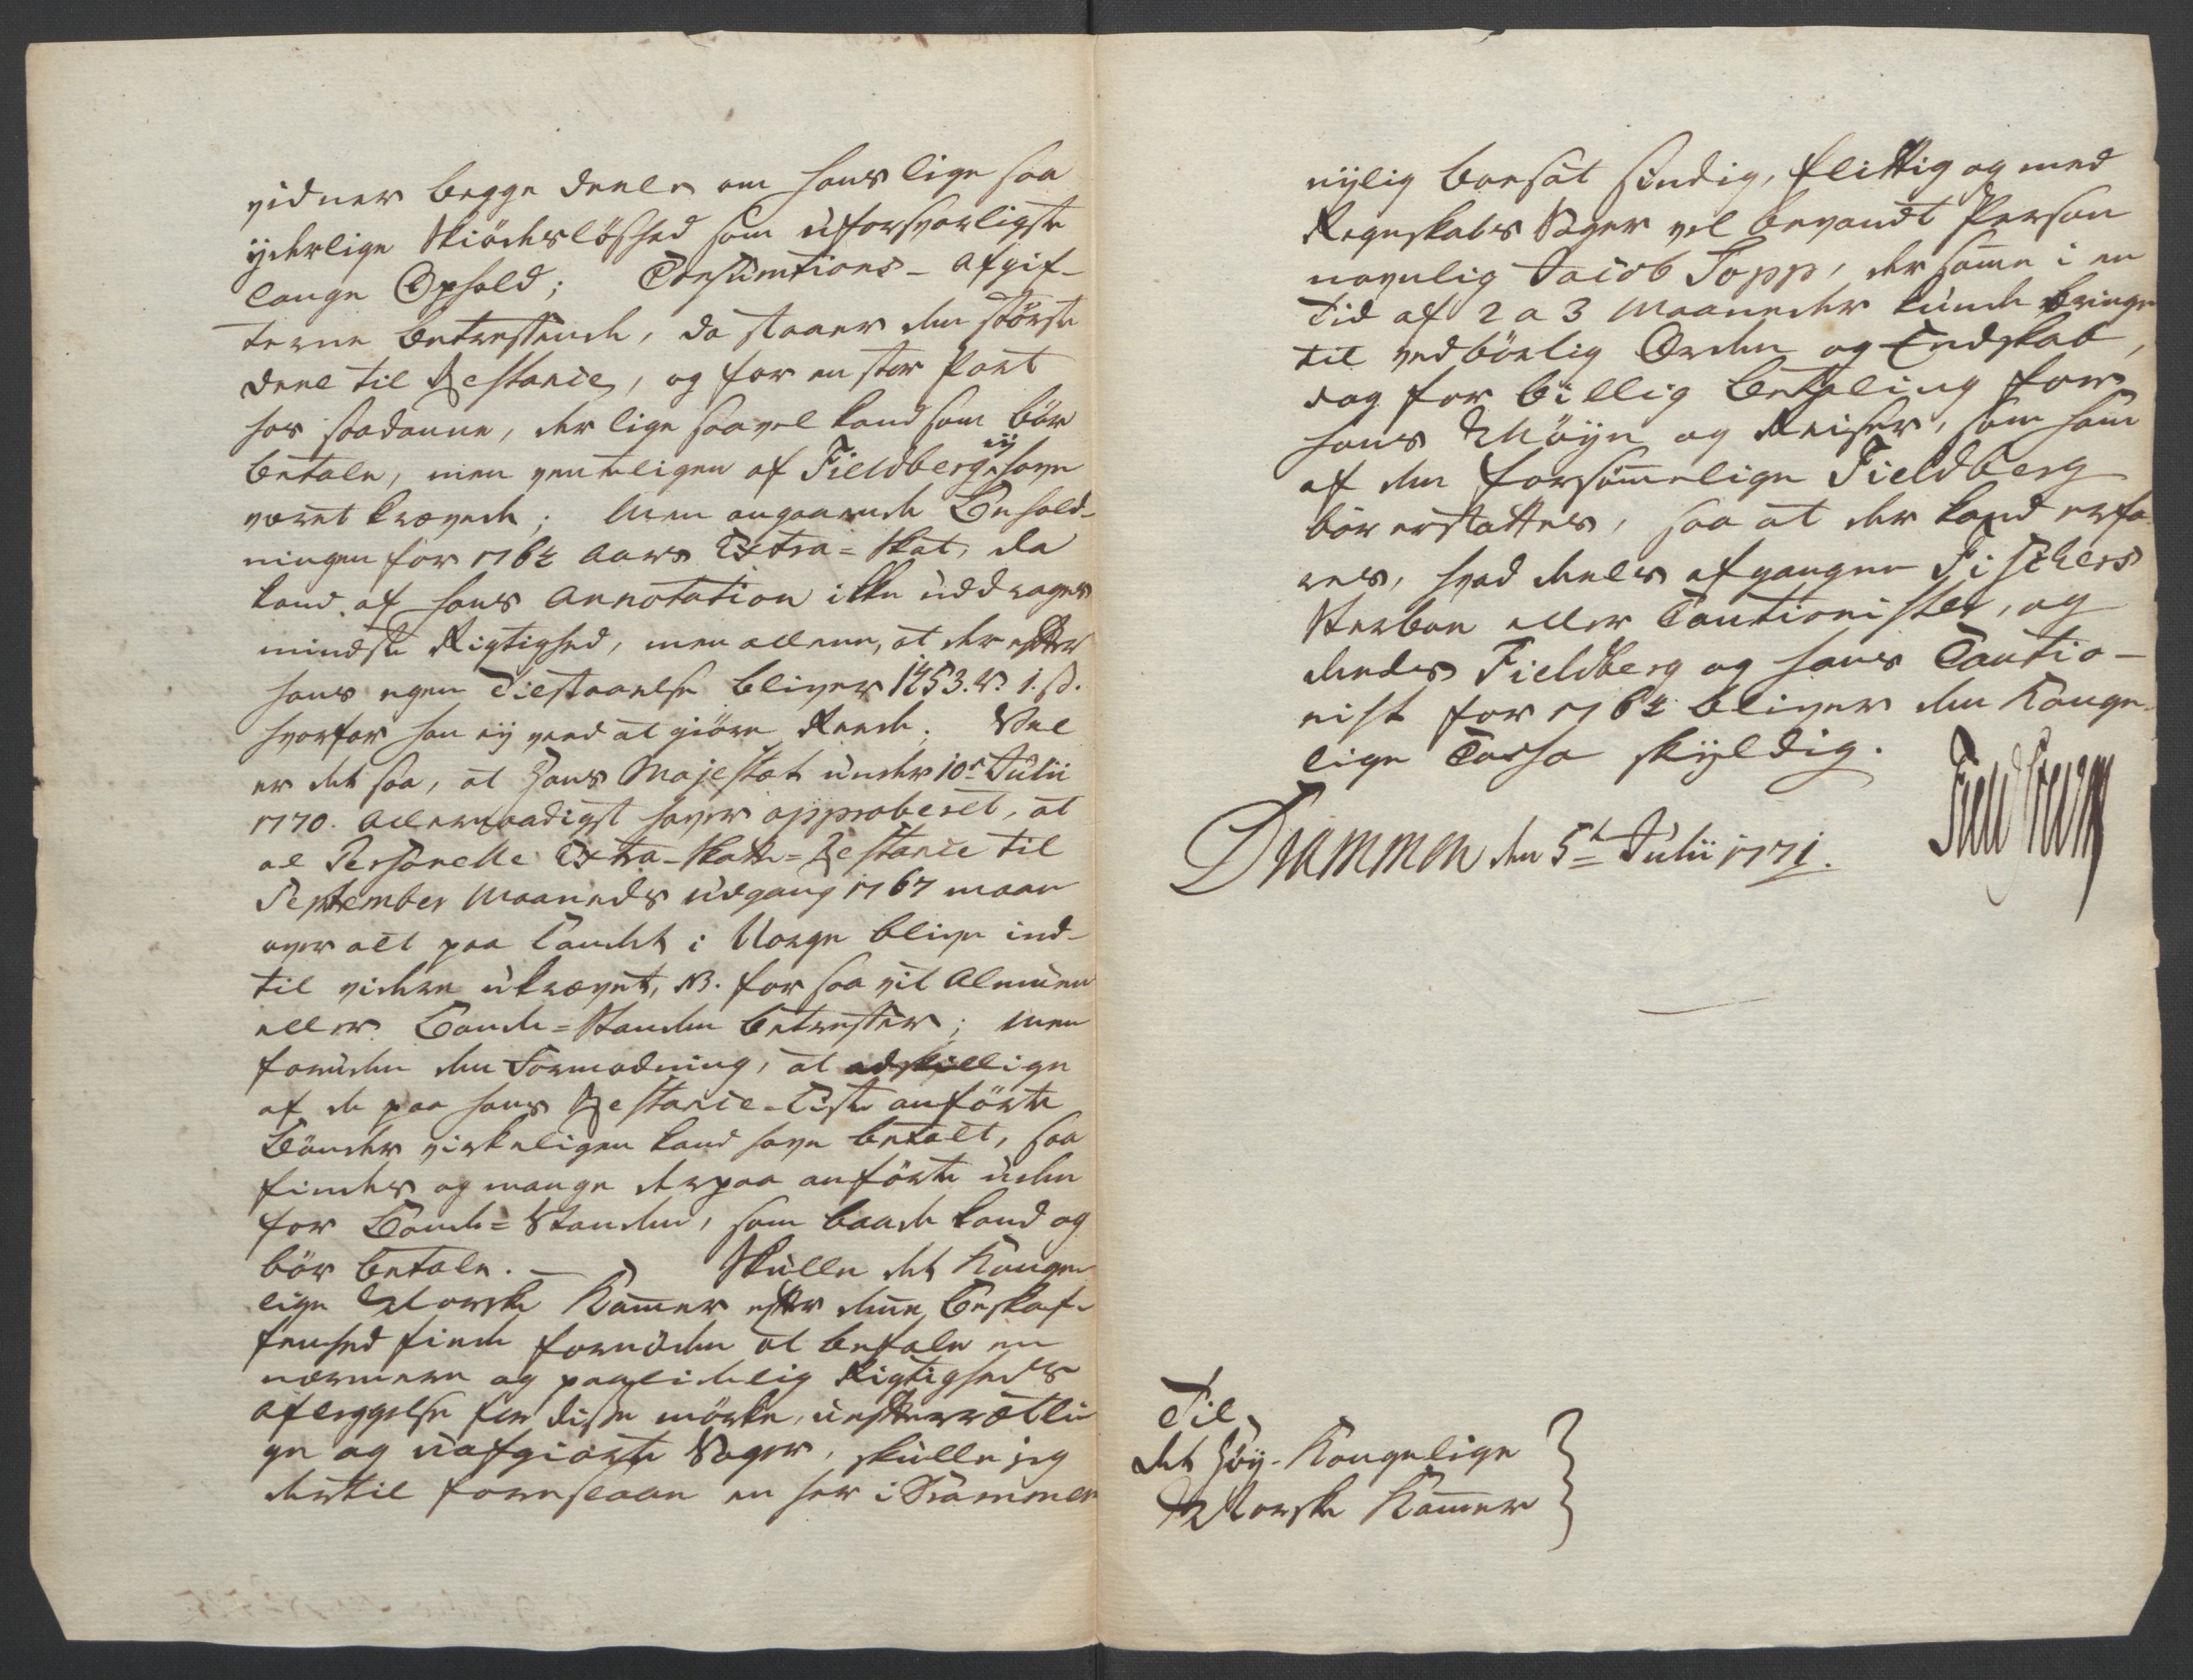 vidner begge deele om hans lige saa
ÿderlige Skiödesløshed som uforsvarligste
lange Ophold; Consumtions-Afgif-
terne betreffende, da staaer den störste
Deel til Restance, og for en stor Part
hos saadanne, der lige saavel kand som bör
betale, men venteligen af Fieldberg eÿ have
været krævede; Men angaaende Behold-
ningen for 1764 Aars Extra=Skat, da
kand af hans Annotation ikke uddrages
mindste Rigtighed, men allene, at der efter
hans egen Tilstaaelse bliver 1453. r. 1. s.
hvorfor han eÿ veed at giöre Reede. Vel
er det saa, at Hans Majestæt under 10de Julii
1770. Allernaadigst haver approberet, at
al Personelle Extra-Skatte=Restance til
September Maaneds udgang 1767 maae
over alt paa Landet i Norge blive ind-
til videre ukrævet, NB. for saa vit Almuen
eller Bonde=Standen betreffer; men
foruden den Formodning, at adskillige
af de paa hans Restance-Liste anförte
Bönder virkeligen kand have betalt, saa
findes og mange derpaa anförte uden
for Bonde=Standen, som baade kand og
bör betale. — Skulle det Konge-
lige Norske Kammer efter denne Beskaf-
fenhed finde fornöden at befale en
nærmere og paalidelig Rigtigheds
Aflæggelse for disse mörke, uefterrætli-
ge og uafgiorte Sager, skulle jeg
dertil foreslaae en her i Drammen
nÿlig boesat sindig, flittig og med
Regnskabs Sager vel bevandt Person
navnlig Jacob Topp, der samme i en
Tid af 2 a 3 Maaneder kunde bringe
til vedbörlig Orden og Endskab,
dog for billig Betaling for
hans Möÿe og Reiser, som ham
af den forsömmelige Fieldberg
bör erstattes, saa at der kand erfa-
res, hvad deels afgangne Fischers
Sterboe eller Cautionister, og
deels Fieldberg og hans Cautio-
nist for 1764 bliver den Konge-
lige Cassa skÿldig.
Drammen den 5te Julii 1771.
Til
Det Höÿ-Kongelige
Norske Kammer